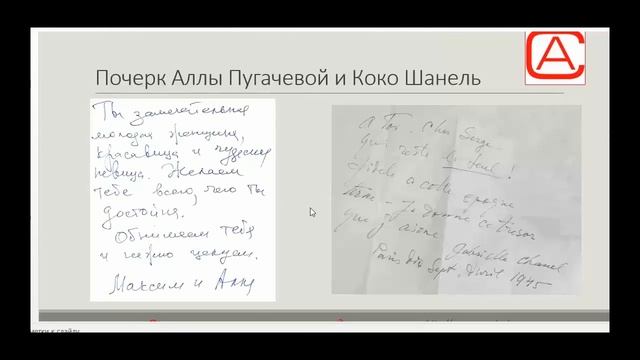 Почерк Аллы Пугачевой и Коко Шанель
СА
Ты замечательная
молодая женщина,
красавица и чудесная
певица. Желаем
тебе всего, чего ты
достойна.
Обнимаем тебя
и нежно целуем.
Максим и Алла
a Toi. Cher Serge
qui reste le seul !
fidèle a cette époque
je donne ce trésor
que j'aime
Gabrielle Chanel
Paris Avril 1945